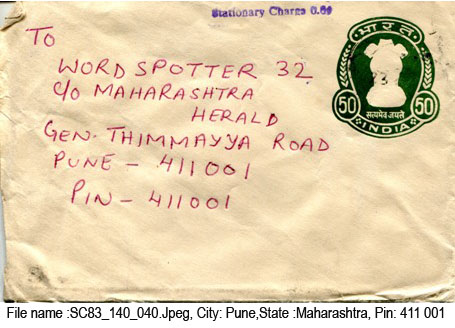 Stationary Charge 0.09
To
WORD SPOTTER 32
C/O MAHARASHTRA
HERALD
GEN. THIMMAYYA ROAD
PUNE - 411001
PIN - 411001
भारत
50
50
सत्यमेव जयते
INDIA
File name :SC83_140_040.Jpeg, City: Pune,State :Maharashtra, Pin: 411 001